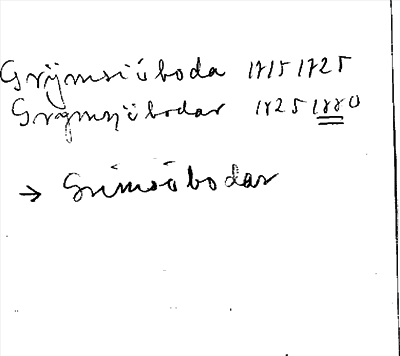 Grijmsiöboda 1715 1725
Grymsjöbodar 1825 1880
→ Grimsöbodar